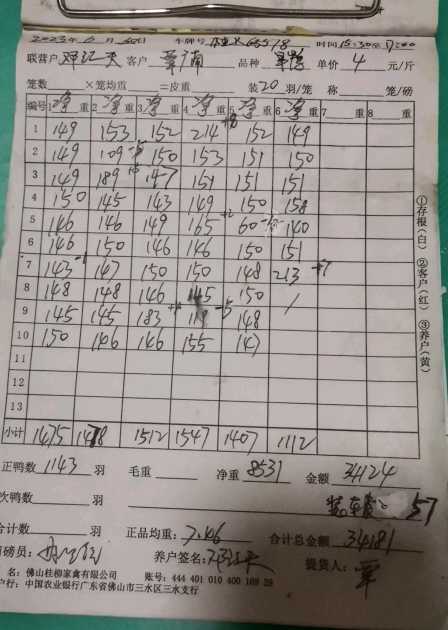 2023年6月30日 车牌号 K66518 时间15:30至17:00
联营户 邓江天 客户 单价 4 元/斤
笼数 ×笼均重 =皮重 装20羽/笼 称 笼/磅
编号 1 净重 2 净重 3 净重 4 净重 5 净重 6 净重 7 重 8 重
1 149 153 152 214 +8 152 149
2 149 109 -5 150 153 151 150
3 149 189 +5 147 151 151 151
4 150 145 143 149 150 158
5 146 146 149 165 +2 60 140
6 146 150 146 146 150 151
7 143 -1 147 150 150 148 213 +7
8 148 148 146 145 150 /
9 145 145 183 -5 148
10 150 146 146 155 147
11
12
13
小计 1475 1438 1512 1547 1407 1112
正鸭数 1143 羽 毛重 净重 8531 金额 34124
次鸭数 羽 装车费 57
合计数 羽 正品均重: 7.46 合计总金额 34181
司磅员: 养户签名: 提货人: 覃
名: 佛山桂柳家禽有限公司 账号: 444 401 010 400 169 28
户行: 中国农业银行广东省佛山市三水区三水支行
①存根(白) ②客户(红) ③养户(黄)